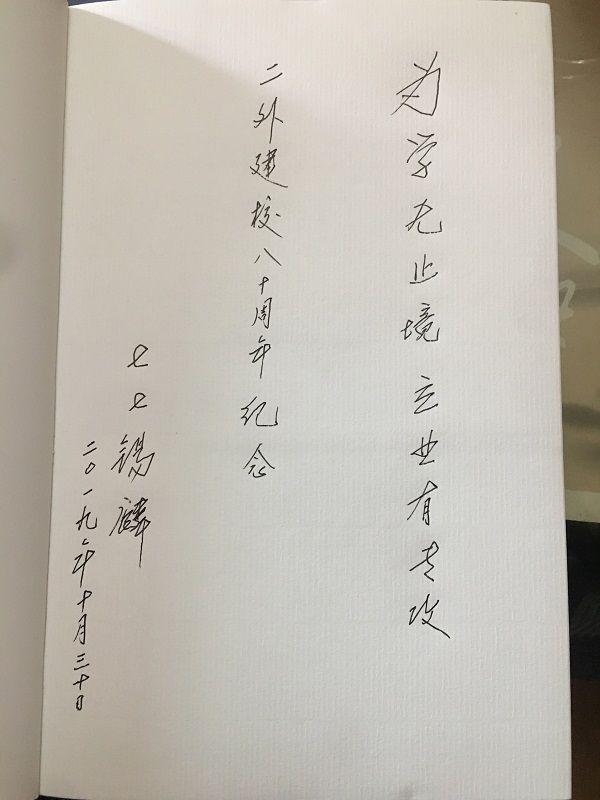 为学无止境立业有专攻
二外建校八十周年纪念
七七锡麟
二〇一九年十月三十日